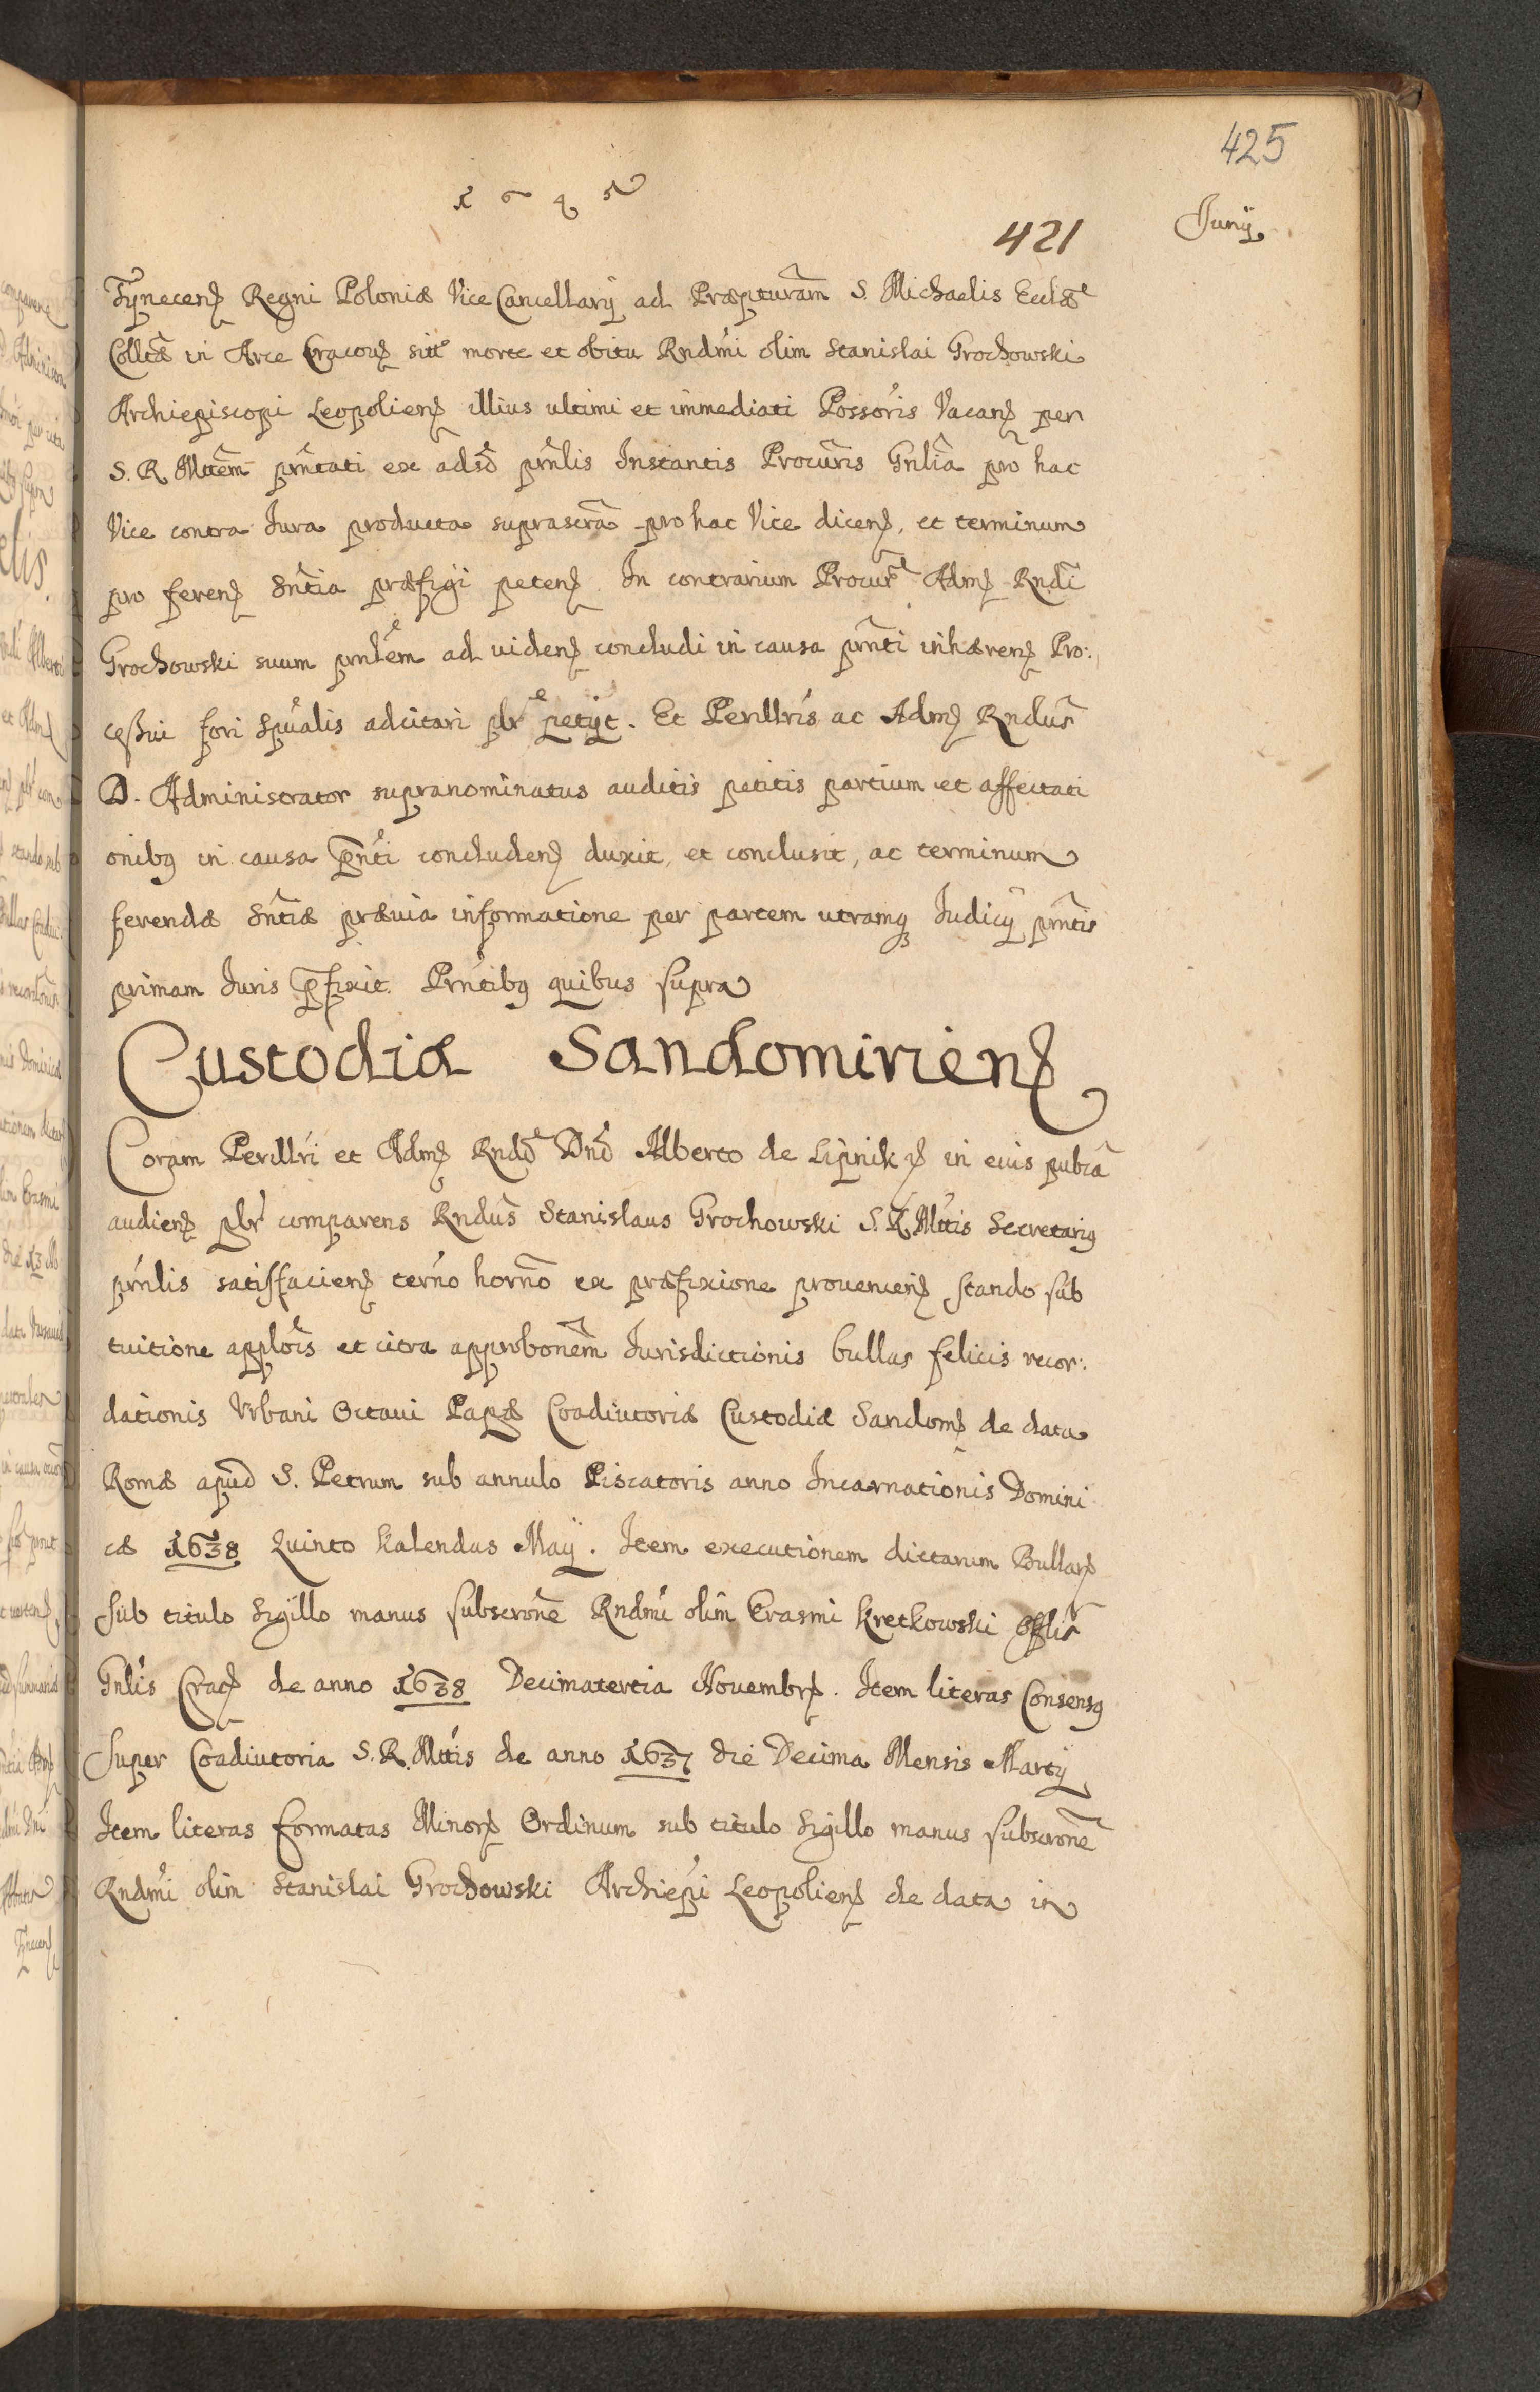 425
1645
421
Junij
Tynecen Regni Poloniæ Vice Cancellarij ad Præpituram S. Michaelis Eccliæ
Colltæ in Arce Cracoῦ sitt morte et obitu Rndmi olim Stanislai Grochowski
Archiepiscopi Leopolien illius ultimi et immediati Possoris Vacan per
S. R. Mttem prntati ex adso prnlis Instantis Procuris Gnlia pro hac
Vice contra Jura producta suprascra pro hac Vice dicen, et terminum
pro feren Sntia præfigi peten In contrarium Procur Adm Rndi
Grochowski suum prnlem ad viden concludi in causa prnti inhæren Pro:
cessui fori Spualis adcitari plr petijt. Et Perillris ac Adm Rndus
D. Administrator supranominatus auditis petitis partium et affectati
onibq in causa pnti concluden duxit, et conclusit, ac terminum
ferendæ Sntiæ prævia informatione per partem utramq Judicij prntis
primam Juris pfixit. Prntibq quibus supra
Custodiæ Sandomirien
Coram Perillri et Adm Rndo Dno Alberto de Lipnik in eius publca
audien plr comparens Rndus Stanislaus Grochowski S. R. Mttis Secretariq
prnlis satisfacien terno horno ex præfixione provenien stando sub
tuitione applois et citra approbonem Jurisdictionis bullas felicis recor:
dationis Vrbani Octaui Papæ Coadiutoriæ Custodiæ Sandom de data
Romæ apud S. Petrum sub annulo Piscatoris anno Incarnationis Domini
cæ 1638 Quinto Kalendas Maij. Item executionem dictarum Bullar
sub titulo Sigillo manus subscrone Rndmi olim Erasmi Kretkowski Offlis
Gnlis Crac de anno 1638 Decimatertia Novembr. Item literas Consensq
super Coadiutoria S. R. Mttis de anno 1637 die Decima Mensis Martij
Item literas formatas Minor Ordinum sub titulo Sigillo manus subscrone
Rndmi olim Stanislai Grochowski Archiepi Leopolien de data in